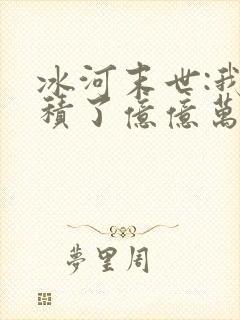 冰河末世:我
積了億億萬
夢里周